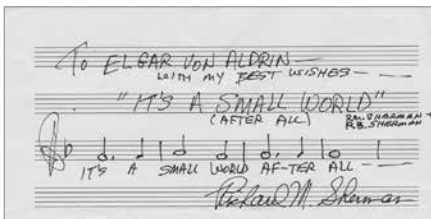 To ELGAR VON ALDRIN —
WITH MY BEST WISHES —
"IT'S A SMALL WORLD"
(AFTER ALL)
RM. SHERMAN +
R.B. SHERMAN
IT'S A SMALL WORLD AF-TER ALL —
Richard M. Sherman